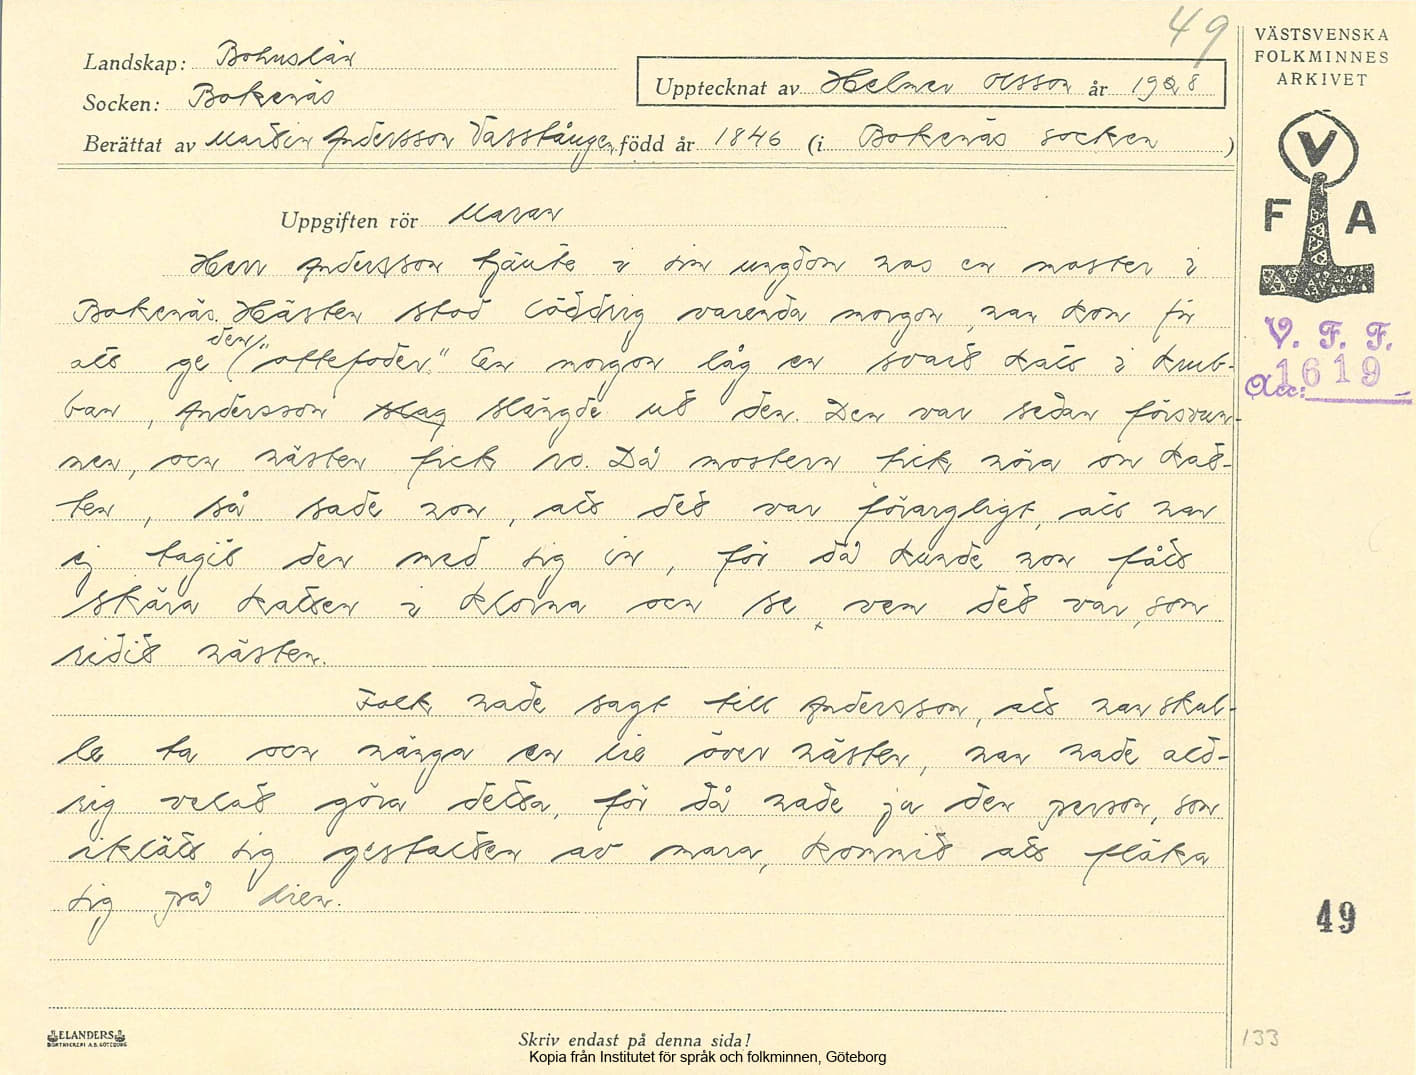 49
VÄSTSVENSKA
FOLKMINNES
ARKIVET
Landskap: Bohuslän
Socken: Bokenäs
Upptecknat av Helmer Olsson år 1928
Berättat av Martin Andersson Vasstången född år 1846 (i Bokenäs socken )
V
F A
Uppgiften rör Maran
Herr Andersson tjänte i sin ungdom hos en moster i
Bokenäs. Hästen stod löddrig varenda morgon, han kom för
att ge den "ottefoder." En morgon låg en svart katt i krub-
ban, Andersson slag slängde ut den. Den var sedan försvun-
nen, och hästen fick ro. Då mostern fick höra om kat-
ten, så sade hon, att det var förargligt, att han
ej tagit den med sig in, för då kunde hon fått
skära katten i klorna och se, vem det var, som
ridit hästen.
Folk hade sagt till Andersson, att han skul-
le ta och hänga en lie över hästen, han hade ald-
rig velat göra detta, för då hade ju den person, som
iklätt sig gestalten av mara, kommit att fläka
sig på lien.
V. F. F.
Acc: 1619
49
133
ELANDERS
BOKTRYCKERI A.B. GÖTEBORG
Skriv endast på denna sida!
Kopia från Institutet för språk och folkminnen, Göteborg